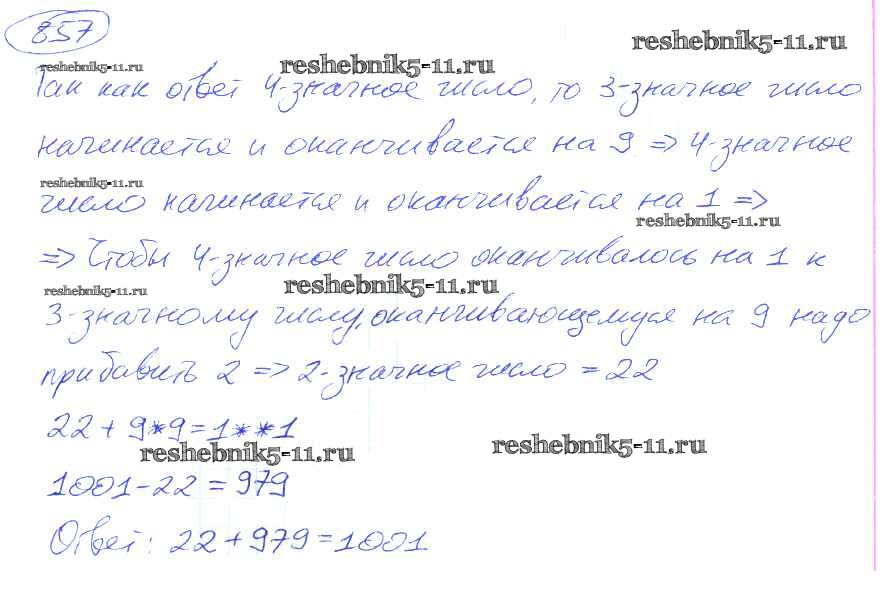 857
reshebnik5-11.ru
reshebnik5-11.ru
reshebnik5-11.ru
Так как ответ 4-значное число, то 3-значное число
начинается и оканчивается на 9 => 4-значное
reshebnik5-11.ru
число начинается и оканчивается на 1 =>
reshebnik5-11.ru
=> Чтобы 4-значное число оканчивалось на 1 к
reshebnik5-11.ru
reshebnik5-11.ru
3-значному числу, оканчивающемуся на 9 надо
прибавить 2 => 2-значное число = 22
22 + 9*9 = 1**1
reshebnik5-11.ru
reshebnik5-11.ru
1001 - 22 = 979
Ответ: 22 + 979 = 1001